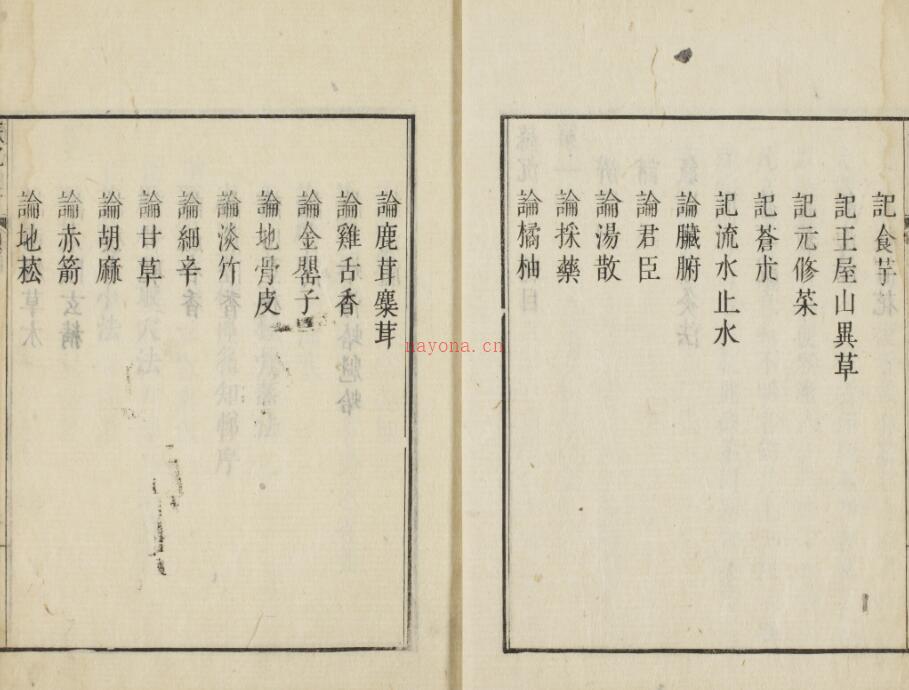 記食芋
記王屋山異草
記元修菜
記蒼朮
記流水止水
論臟腑
論君臣
論湯散
論採藥
論橘柚
論鹿茸麋茸
論雞舌香
論金罌子
論地骨皮
論淡竹
論細辛
論甘草
論胡麻
論赤箭
論地菘
nayona.cn